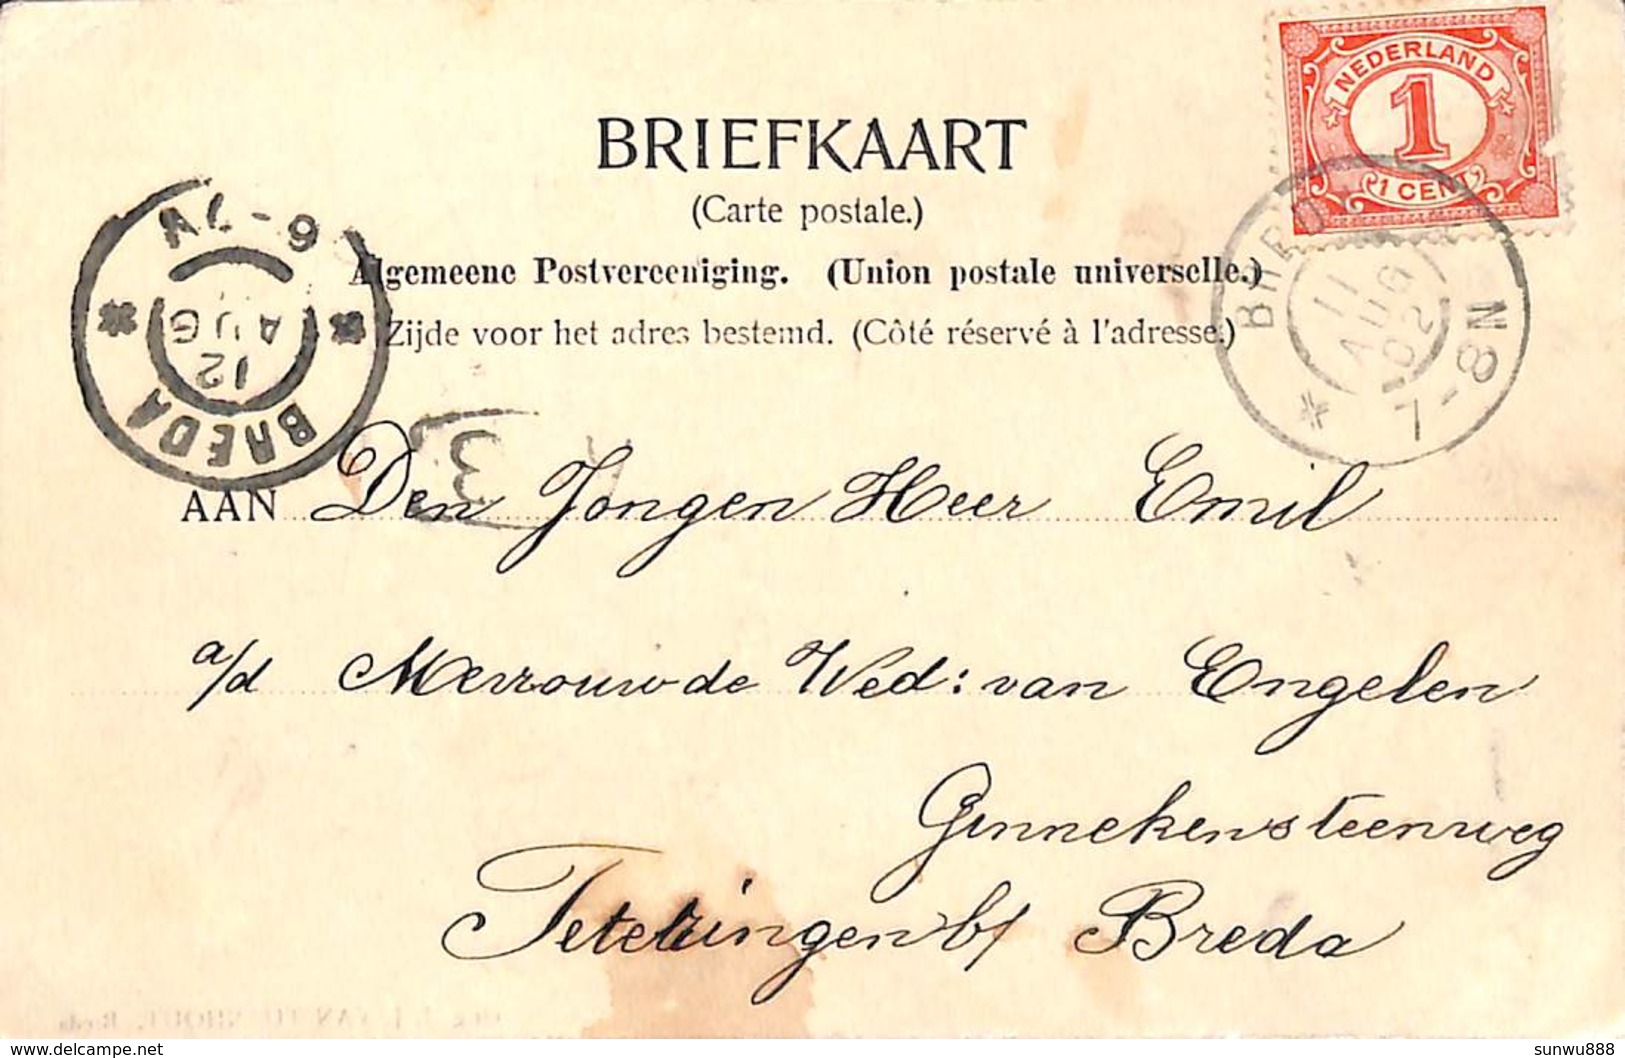 NEDERLAND
1
1 CENT
BRIEFKAART
(Carte postale.)
Algemeene Postvereeniging. (Union postale universelle.)
Zijde voor het adres bestemd. (Côté réservé à l'adresse.)
BREDA
12 AUG
6-7V
BREDA
11
AUG
02
7-8N
3
AAN Den Jongen Heer Emil
a/d Mevrouw de Wed: van Engelen
Ginnekensteenweg
Teteringen b/ Breda
sunwu888